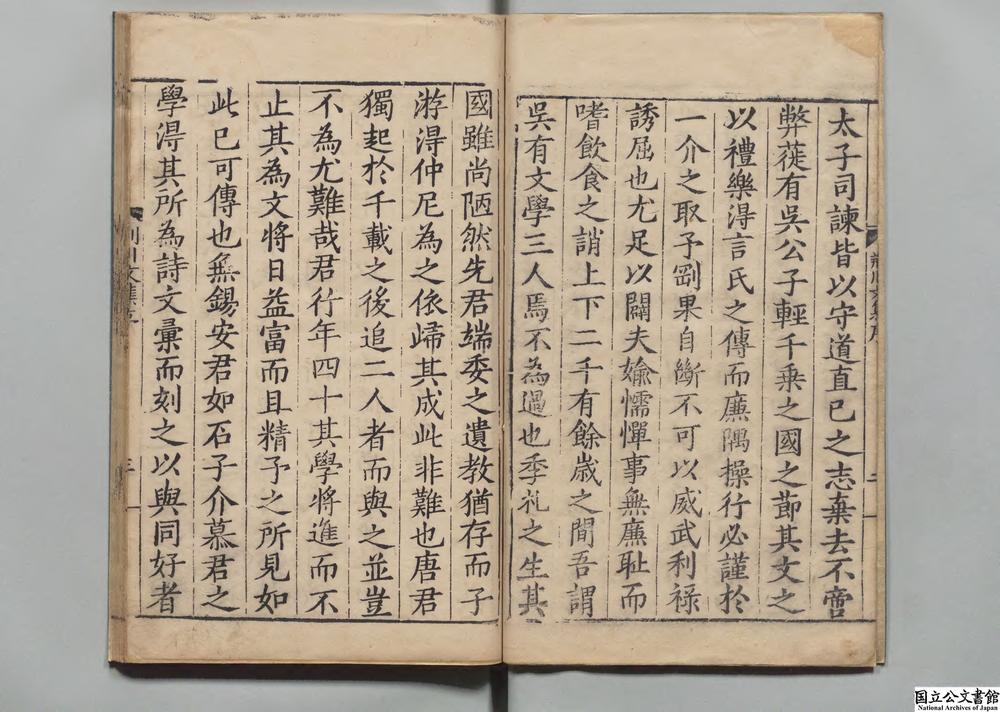 太子司諫皆以守道直已之志棄去不啻
弊蓰有吳公子輕千乗之國之節其文之
以禮樂淂言氏之傳而廉隅操行必謹於
一介之取予剛果自斷不可以威武利祿
誘屈也尤足以闢夫婾懦憚事無廉耻而
嗜飲食之誚上下二千有餘歲之間吾謂
吳有文學三人焉不為過也季札之生其
國雖尚陋然先君端委之遺教猶存而子
游得仲尼為之依歸其成此非難也唐君
獨起於千載之後追二人者而與之並豈
不為尤難哉君行年四十其學將進而不
止其為文將日益富而且精予之所見如
此已可傳也無錫安君如石子介慕君之
學淂其所為詩文彙而刻之以與同好者
荊川文集序
二
荊川文集序
三
国立公文書館
National Archives of Japan